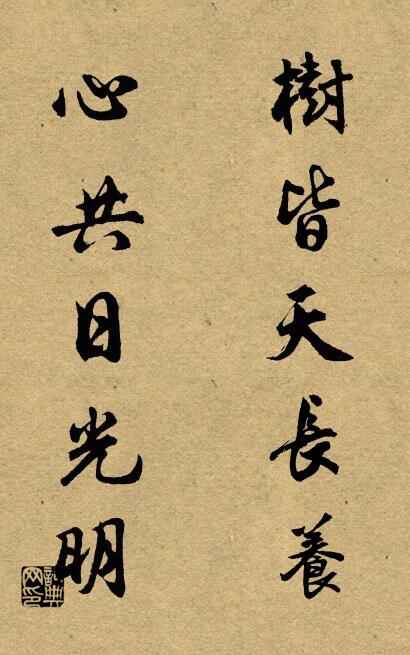 樹皆天長養
心共日光明